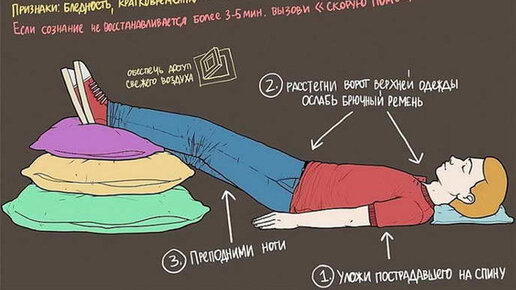 Признаки: бледность, кратковременная
Если сознание не восстанавливается более 3-5 мин. вызови «скорую
обеспечь доступ
свежего воздуха
2. расстегни ворот верхней одежды
ослабь брючный ремень
3. Преподними ноги
1. Уложи пострадавшего на спину